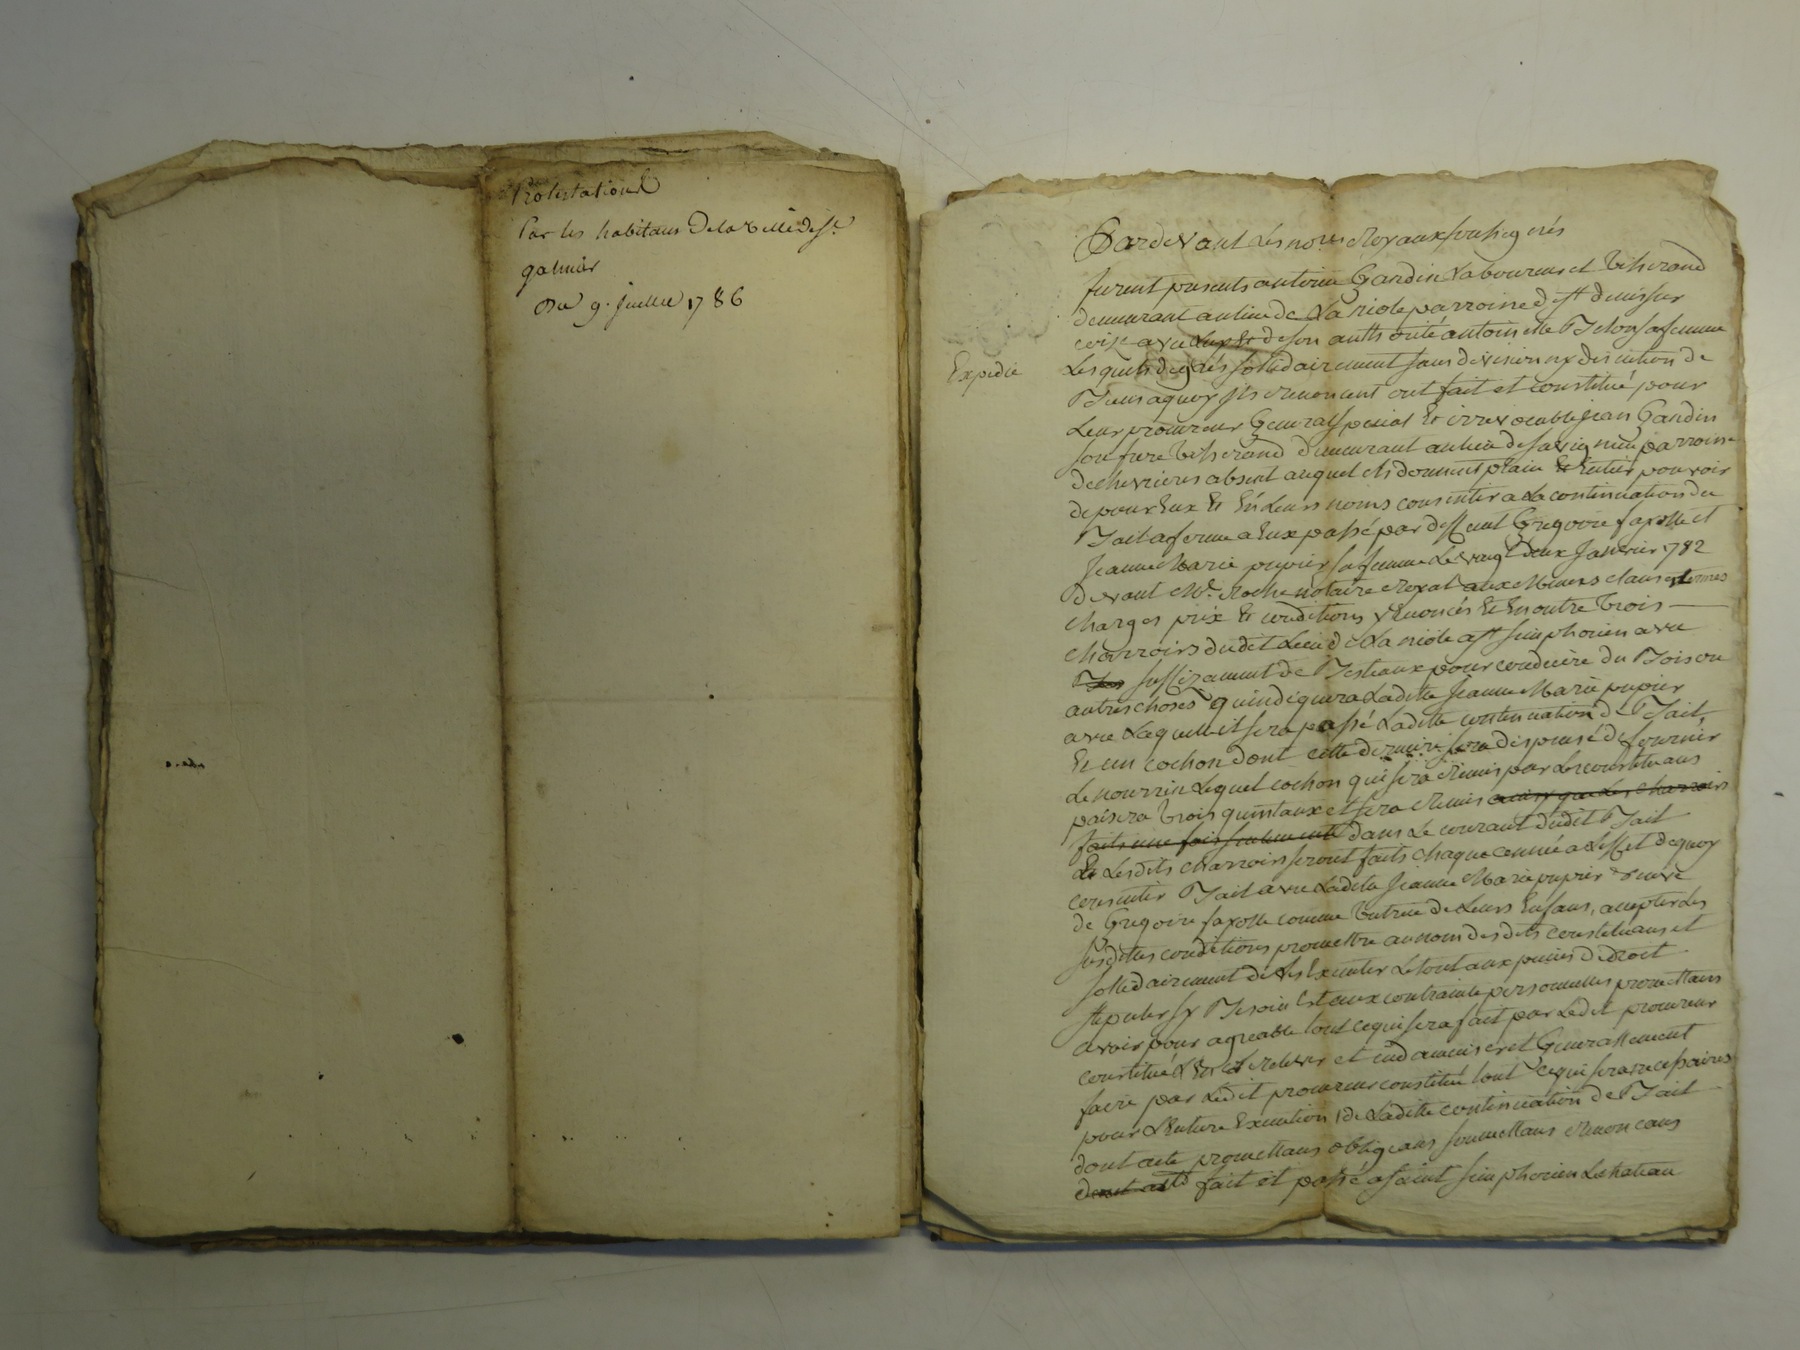 Protestation
Par les habitans De la ville de St
galmier
Du 9. juillet 1786
Expedié
Pardevant Les nores Royaux soussignés
furent presents antoine Gardin Laboureur et tisserand
demeurant au lieu de La niole parroisse de st denis sur
coise avec luy & de son authorité antoinette sa femme
Lesquels degrés sollidairement sans division ny discution de
Biens a quoy ils renoncent ont fait et constitué pour
Leur procureur General special & irrevocable jean Gardin
son frere tisserand demeurant au lieu de savigneu parroisse
de chevrieres absent auquel ils donnent plain & Entier pouvoir
de pour Eux & En Leurs noms consentir a La continuation du
Bail a ferme a Eux passé par deffunt Gregoire fayolle et
Jeanne Marie pupier sa femme Le vingt deux Janvier 1782
Devant Me. Roche notaire Royal aux Memes clauses termes
charges prix & conditions y Enoncés & En outre trois
charroirs dudit Lieu de La niole a st simphorien avec
suffizament de Bestiaux pour conduire du Bois ou
autres choses qu'indiquera Ladite Jeanne Marie pupier
avec Laquelle il sera passé Ladite continuation de Bail,
& un cochon dont cette derniere sera dispensé de fournir
Le nourrin Lequel cochon qui sera Remis par Les constituans
paisera trois quintaux et sera Remis ainsy que Les charroirs
faits une fois seulement dans Le courant dudit Bail
& Lesdits charroirs seront faits chaque année a L'effet de quoy
consentir Bail avec Ladite Jeanne Marie pupier veuve
de Gregoire fayolle comme tutrice de Leurs Enfans, accepter Les
susdittes conditions promettre au nom desdits constituans et
sollidairement de Les Executer Le tout aux peines de droit
stipuler sy Besoin Est aux contrainte personnelles promettans
avoir pour agreable tout ce qui sera fait par Ledit procureur
constitué L'En Relever et indamniser et Generallement
faire par Ledit procureur constitué tout ce qui sera necessaires
pour L'Entiere Execution de Ladite continuation de Bail
dont acte promettans obligeans soumettans Renoncans
dont acte fait et passé a saint simphorien Lechateau